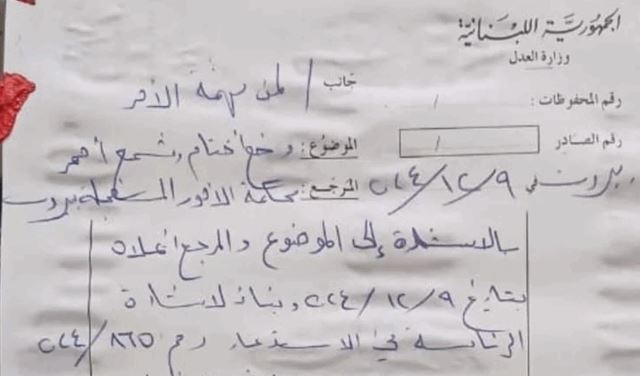 الجمهورية اللبنانية
وزارة العدل
رقم المحفوظات : /
رقم الصادر /
جانب / لمن يهمه الأمر
الموضوع : وضع أختام وشمع أحمر
بيروت في ٢٠٢٤/١٢/٩
المرجع : محكمة الأمور المستعجلة بيروت
بالاستناد إلى الموضوع والمرجع أعلاه
بتاريخ ٢٠٢٤/١٢/٩ وبناء لاشارة
الرئاسة في الاستدعاء رقم ٢٠٢٤/٨٦٥